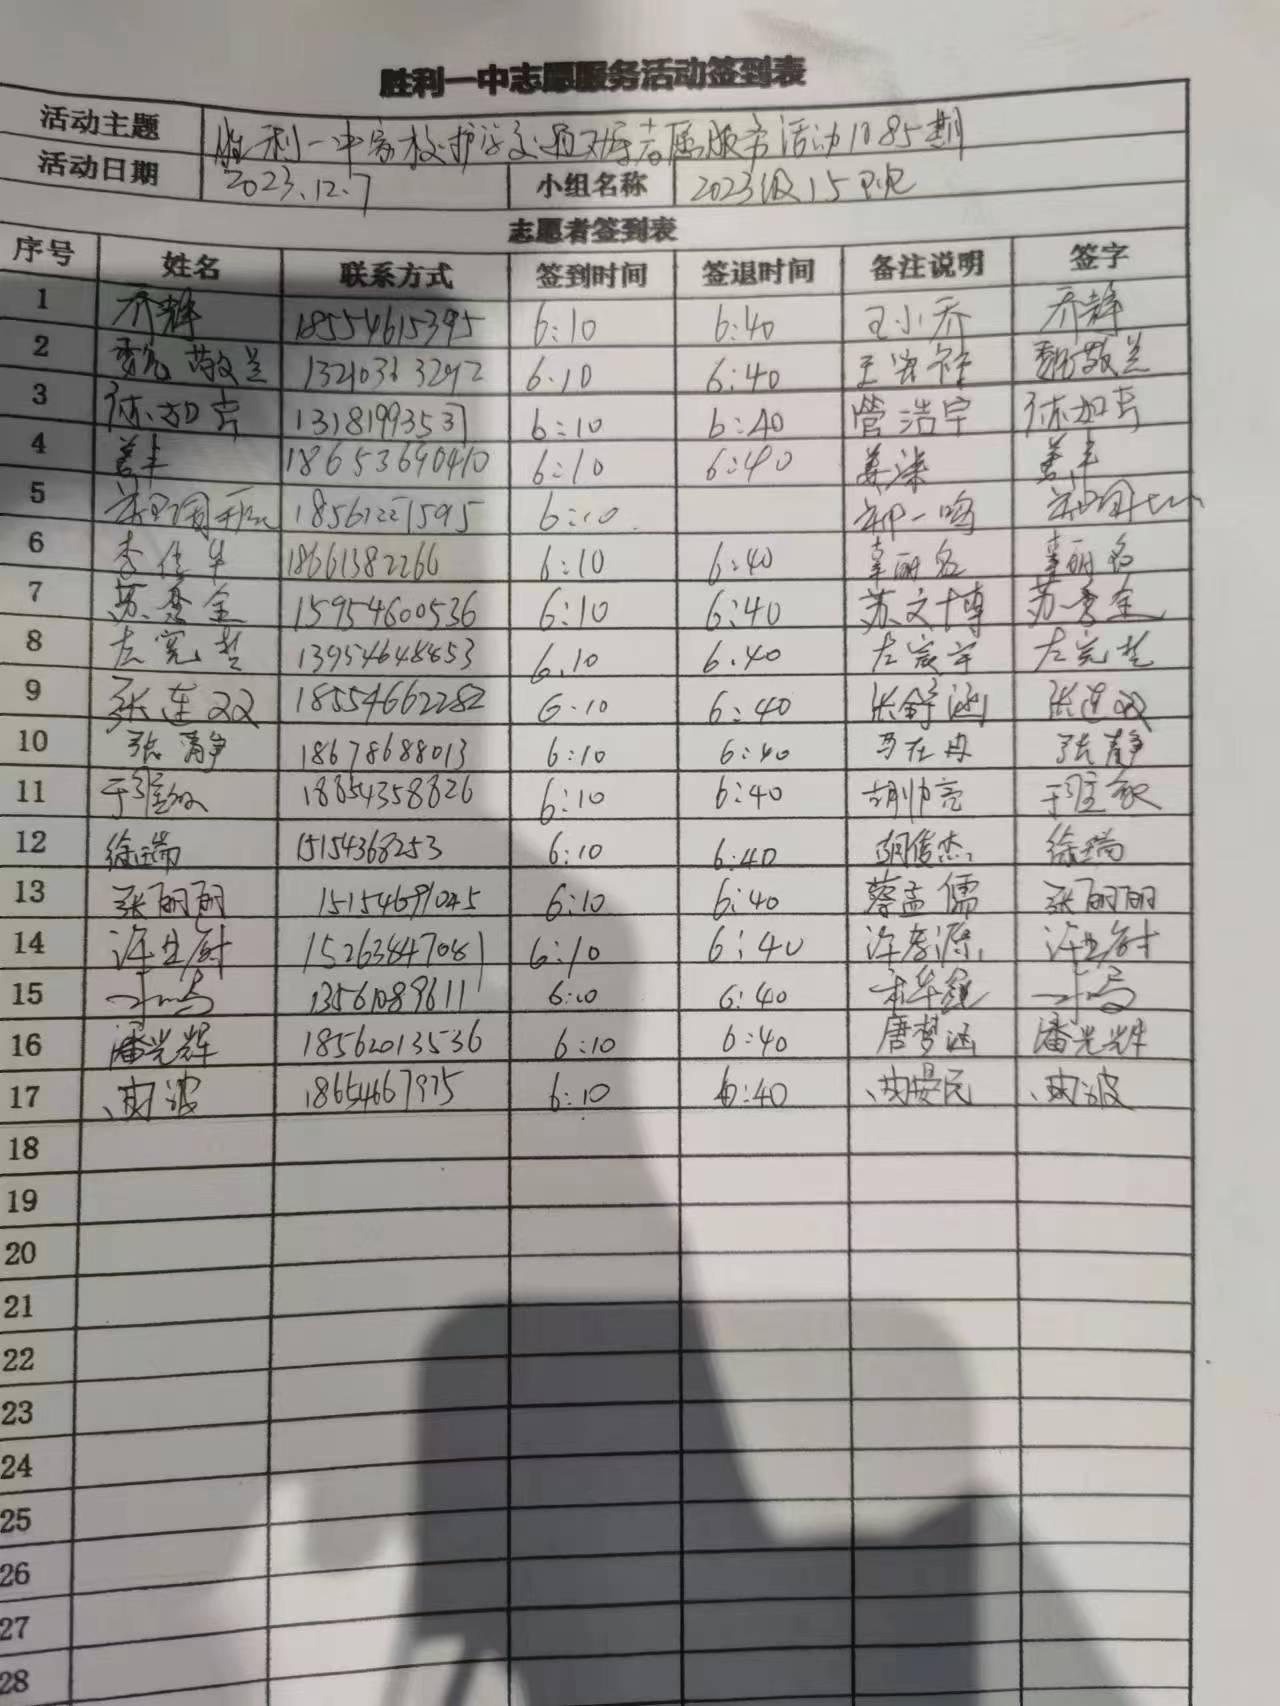 胜利一中志愿服务活动签到表
活动主题 胜利一中家校护学交通劝导志愿服务活动1085期
活动日期 2023.12.7 小组名称 2023级15
志愿者签到表
序号 姓名 联系方式 签到时间 签退时间 备注说明 签字
1 乔静 18554615395 6:10 6:40 王小乔 乔静
2 魏敬兰 13210363292 6.10 6:40 王 魏敬兰
3 1318199353 6:10 6:40 管浩宇
4 姜丰 18653690410 6:10 6:40 姜 姜丰
5 18561221595 6:10 一鸣
6 李佳华 18661382266 6:10 6:40
7 苏秀金 15954600536 6:10 6:40 苏文博 苏秀金
8 左宪楚 13954648853 6.10 6.40 左宸宇 左宪楚
9 张连双 18554662282 6.10 6:40 张舒涵 张连双
10 张静 18678688013 6:10 6:40 马在冉 张静
11 于 18854358826 6:10 6:40 胡帅亮 于
12 徐瑞 15154368253 6:10 6:40 俊杰 徐瑞
13 张丽丽 15154691045 6:10 6:40 蔡孟儒 张丽丽
14 许 15263847081 6:10 6:40 许 源 许
15 13561089611 6:10 6:40
16 潘光辉 18562013536 6:10 6:40 唐梦涵 潘光辉
17 曲波 18654667975 6:10 6:40 曲晏民 曲波
18
19
20
21
22
23
24
25
26
27
28